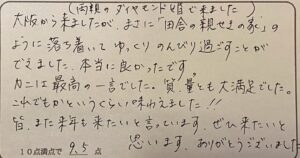 (両親のダイヤモンド婚で来ました)
大阪から来ましたが、まさに「田舎の親せきの家」の
ように落ち着いてゆっくりのんびり過ごすことが
できました。本当に良かったです。
カニは最高の一言でした。質、量とも大満足でした。
これでもかというくらい味わえました!!
皆、また来年も来たいと言っています。ぜひ来たいと
思います。ありがとうございました
10点満点で 9.5 点